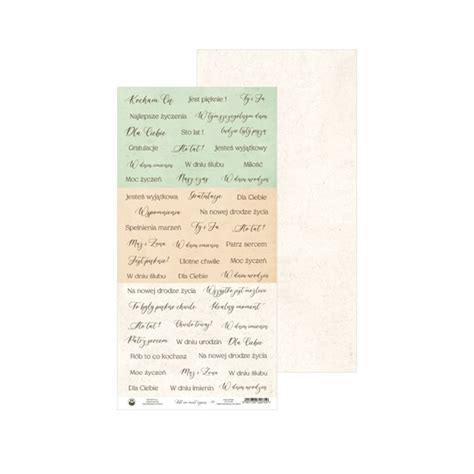 Kocham Cię Jest pięknie! Ty i Ja
Najlepsze życzenia W tym szczególnym dniu
Dla Ciebie Sto lat!
Gratulacje Sto lat! Jesteś wyjątkowy
W dniu imienin W dniu ślubu Miłość
Moc życzeń Nasz czas W dniu urodzin
Jesteś wyjątkowy Gratulacje Dla Ciebie
Wspomnienia Na nowej drodze życia
Spełnienia marzeń Ty i Ja Sto lat!
Maż i Żona W dniu imienin Patrz sercem
Jest pięknie! Ulotne chwile Moc życzeń
W dniu ślubu Dla Ciebie W dniu urodzin
Na nowej drodze życia Wszystko jest możliwe
To były piękne chwile Idealny moment
Sto lat! Chwilo trwaj!
Patrz sercem W dniu urodzin Dla Ciebie
Rób to co kochasz Na nowej drodze życia
Moc życzeń Mąż i Żona W dniu ślubu
Dla Ciebie W dniu imienin W dniu urodzin